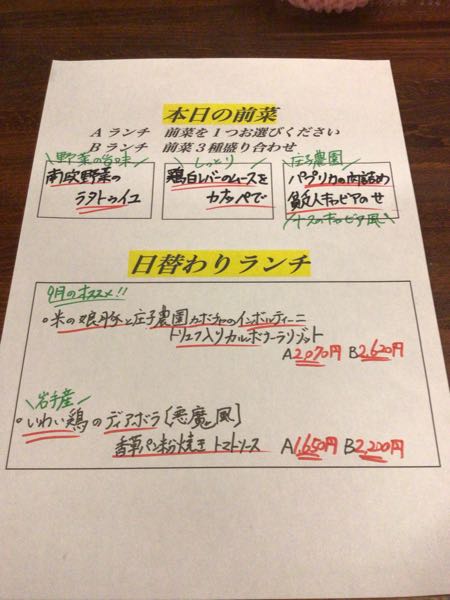 本日の前菜
A ランチ 前菜を1つお選びください
B ランチ 前菜3種盛り合わせ
野菜の旨味
南欧野菜の
ラタトゥイユ
しっとり
鶏白レバーのムースを
カナッペで
庄子農園
パプリカの肉詰め
貧乏人キャビアのせ
ナスのキャビア風
日替わりランチ
9月のオススメ!!
・米の娘豚と庄子農園カボチャのインボルティーニ
トリュフ入りカルボナーラリゾット
A2,070円 B2,620円
岩手産
・いわい鶏のディアボラ[悪魔風]
香草パン粉焼き トマトソース
A1,650円 B2,200円